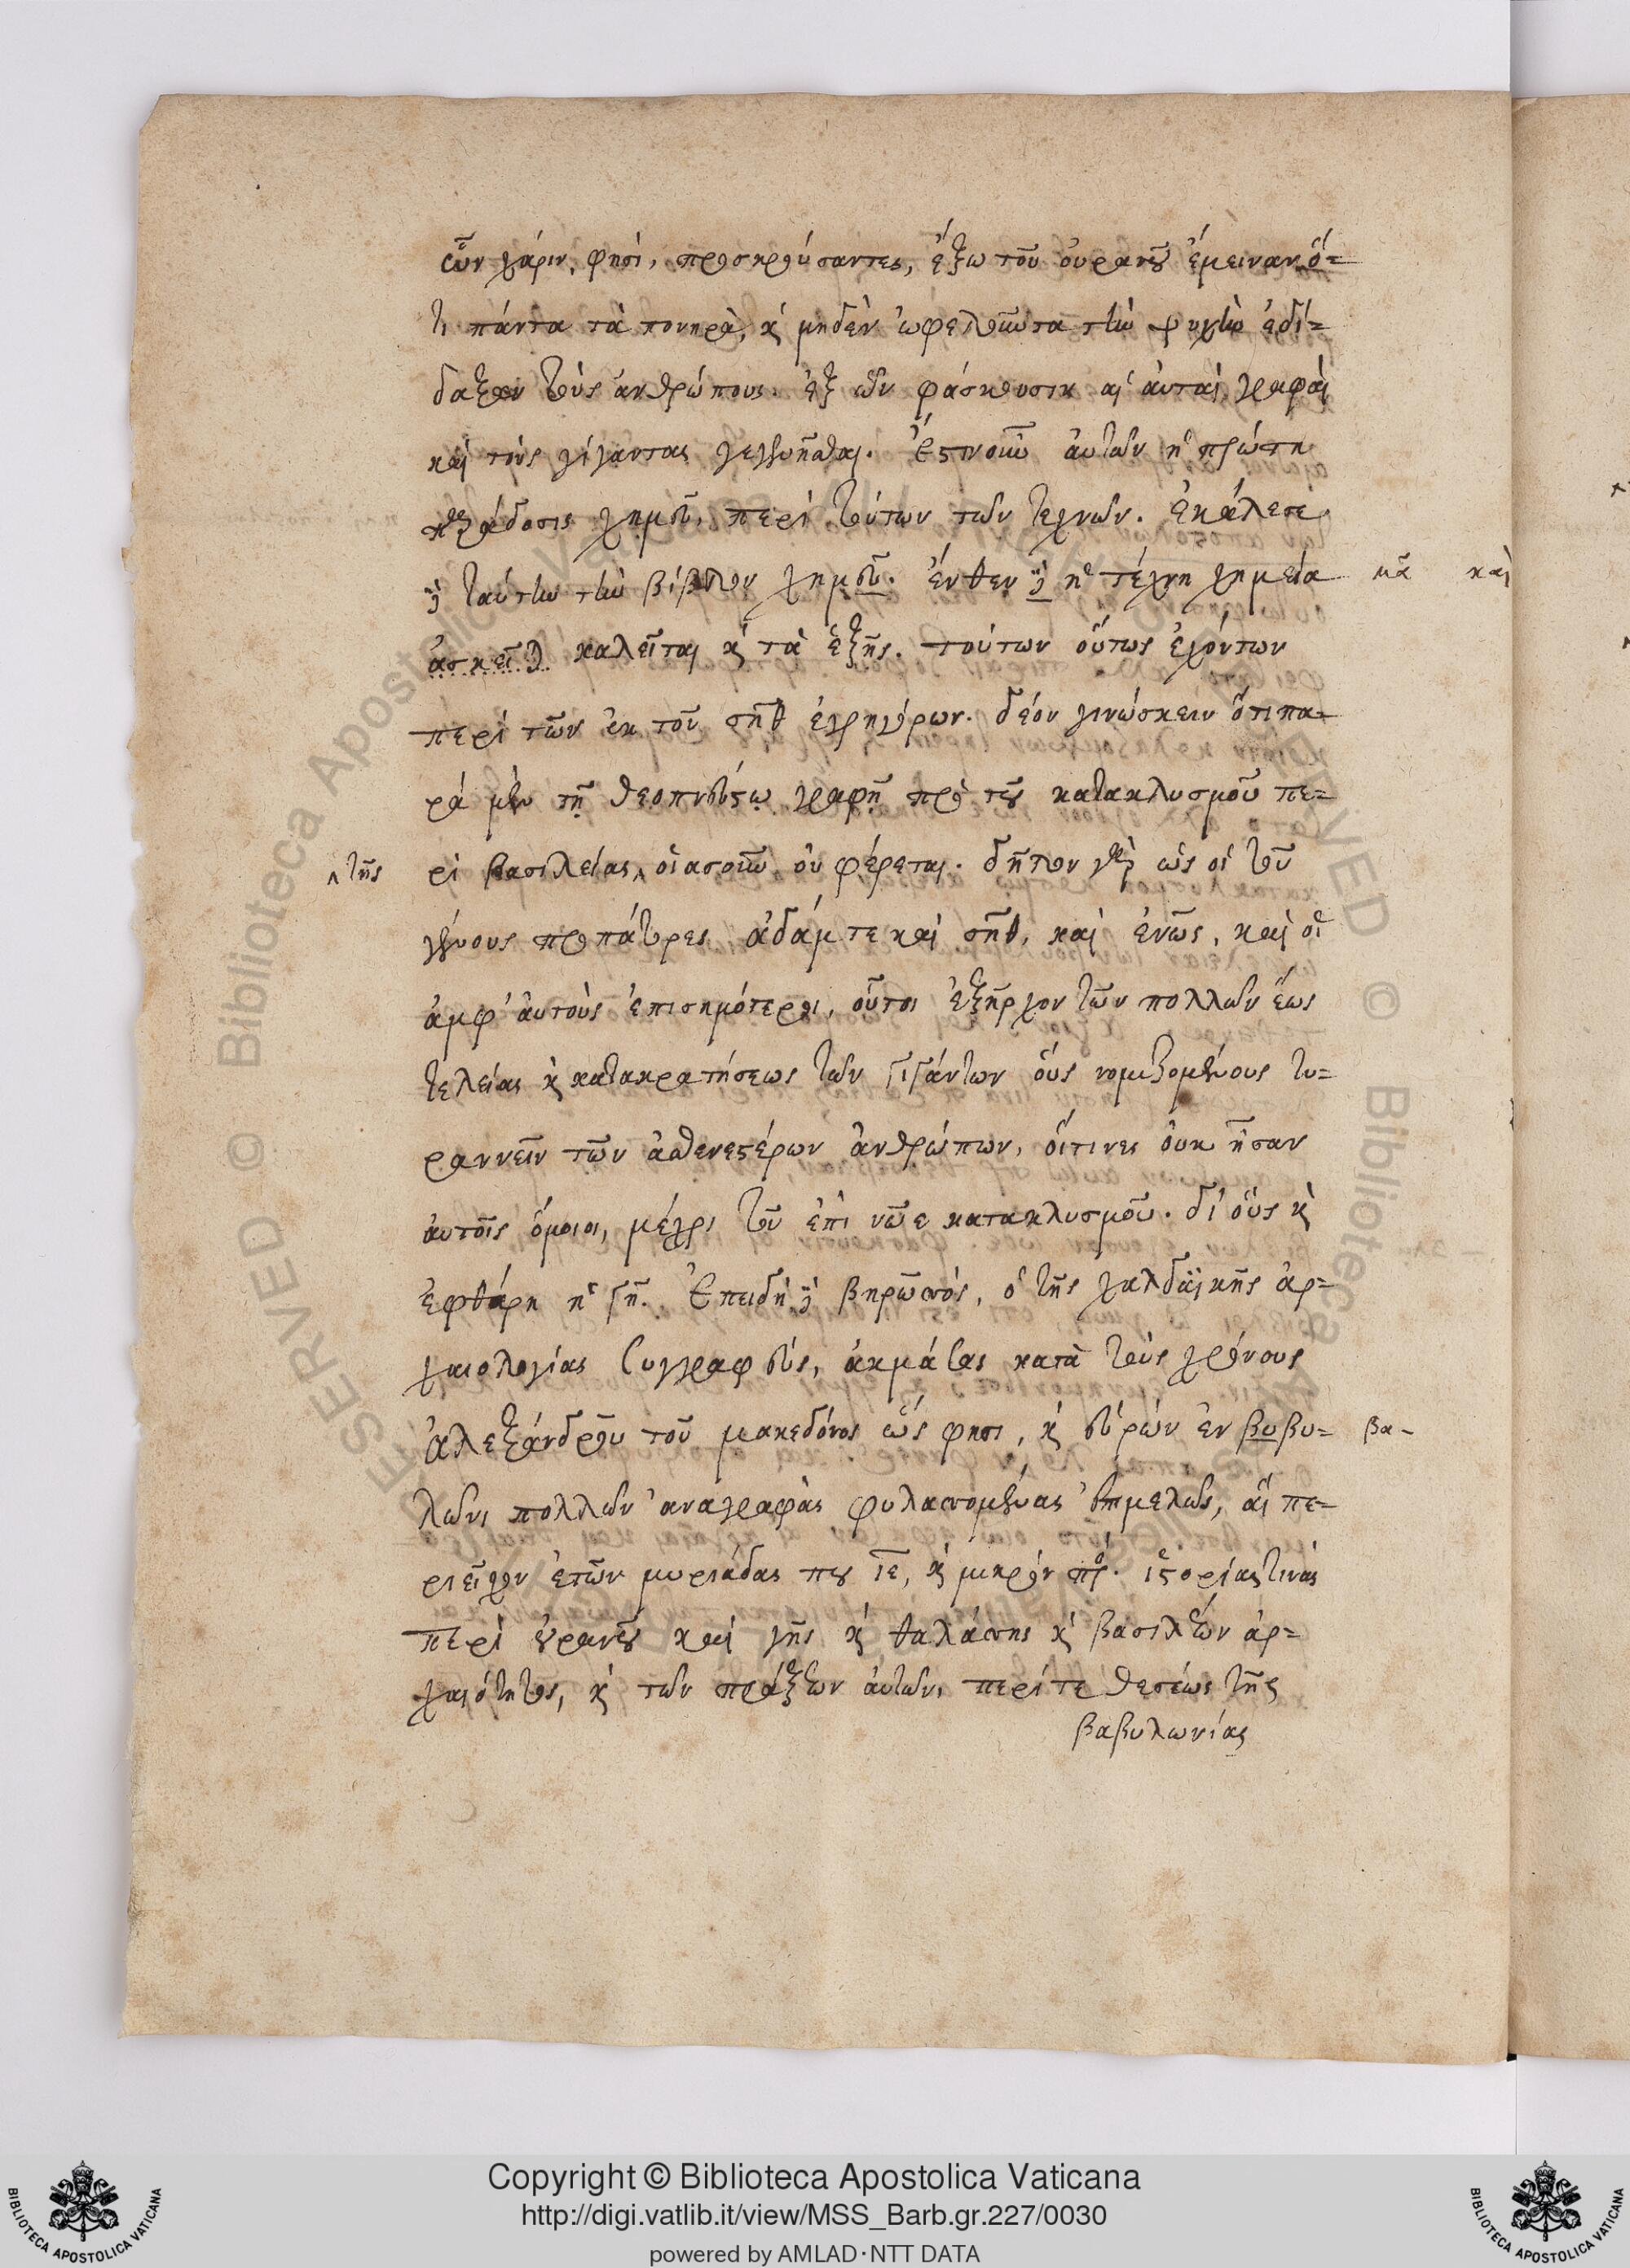 ὧν χάριν, φησὶ, προσκρούσαντες, ἔξω τοῦ οὐρανοῦ ἔμειναν, ὅ=
τι πάντα τὰ πονηρὰ, κ̀ μηδὲν ὠφελοῦντα τὴν ψυχὴν ἐδί=
δαξαν τοὺς ἀνθρώπους. ἐξ ὧν φάσκουσιν αἱ αὐταὶ γραφαὶ
καὶ τοὺς γίγαντας γεγενῆσθαι. Ἔστιν οὖν αὐτῶν ἡ πρώτη
παράδοσις χημεῦ, περὶ τούτων τῶν τεχνῶν. Ἐκάλεσε
δὲ ταύτην τὴν βίβλον χημεῦ. ἔνθεν δὲ ἡ τέχνη χημεία
μᾶ
ἀσκεῖ λ καλεῖται κ̀ τὰ ἑξῆς. τούτων οὕτως ἐχόντων
περὶ τῶν ἐκ τοῦ σὴθ ἐγρηγόρων. δέον γινώσκειν ὅτι πα=
ρὰ μὲν τῇ θεοπνεύστῳ γραφῇ πρὸ τοῦ κατακλυσμοῦ πε=
^ τῆς
ρὶ βασιλείας ^ οἱασοῦν οὐ φέρεται. δῆλον γὰρ ὡς οἱ τοῦ
γένους προπάτορες ἀδάμ τε καὶ σὴθ, καὶ ἐνῶς, καὶ οἱ
ἀμφ' αὐτοὺς ἐπισημότεροι, οὗτοι ἐξῆρχον τῶν πολλῶν ἕως
τελείας κ̀ κατακρατήσεως τῶν γιγάντων οὓς νομιζομένους τυ=
ραννεῖν τῶν ἀσθενεστέρων ἀνθρώπων, οἵτινες οὐκ ἦσαν
αὐτοῖς ὅμοιοι, μέχρι τοῦ ἐπὶ νῶε κατακλυσμοῦ. δι' οὓς κ̀
ἐφθάρη ἡ γῆ. Ἐπειδὴ δὲ βηρωσσὸς, ὁ τῆς χαλδαϊκῆς ἀρ=
χαιολογίας συγγραφεὺς, ἀκμάσας κατὰ τοὺς χρόνους
ἀλεξάνδρου τοῦ μακεδόνος ὥς φησι, κ̀ εὑρὼν ἐν βυβυ=
βα-
λῶνι πολλῶν ἀναγραφὰς φυλασσομένας ἐπιμελῶς, αἳ πε=
ριεῖχον ἐτῶν μυριάδας που ιε, κ̀ μικρόν πρ. ἱστορίας τινὰς
περὶ οὐρανοῦ καὶ γῆς κ̀ θαλάσσης κ̀ βασιλέων ἀρ=
χαιότητος, κ̀ τῶν πράξεων αὐτῶν, περί τε θεσέως τῆς
βαβυλωνίας
καὶ
Copyright © Biblioteca Apostolica Vaticana
http://digi.vatlib.it/view/MSS_Barb.gr.227/0030
powered by AMLAD·NTT DATA
BIBLIOTECA APOSTOLICA VATICANA
BIBLIOTECA APOSTOLICA VATICANA